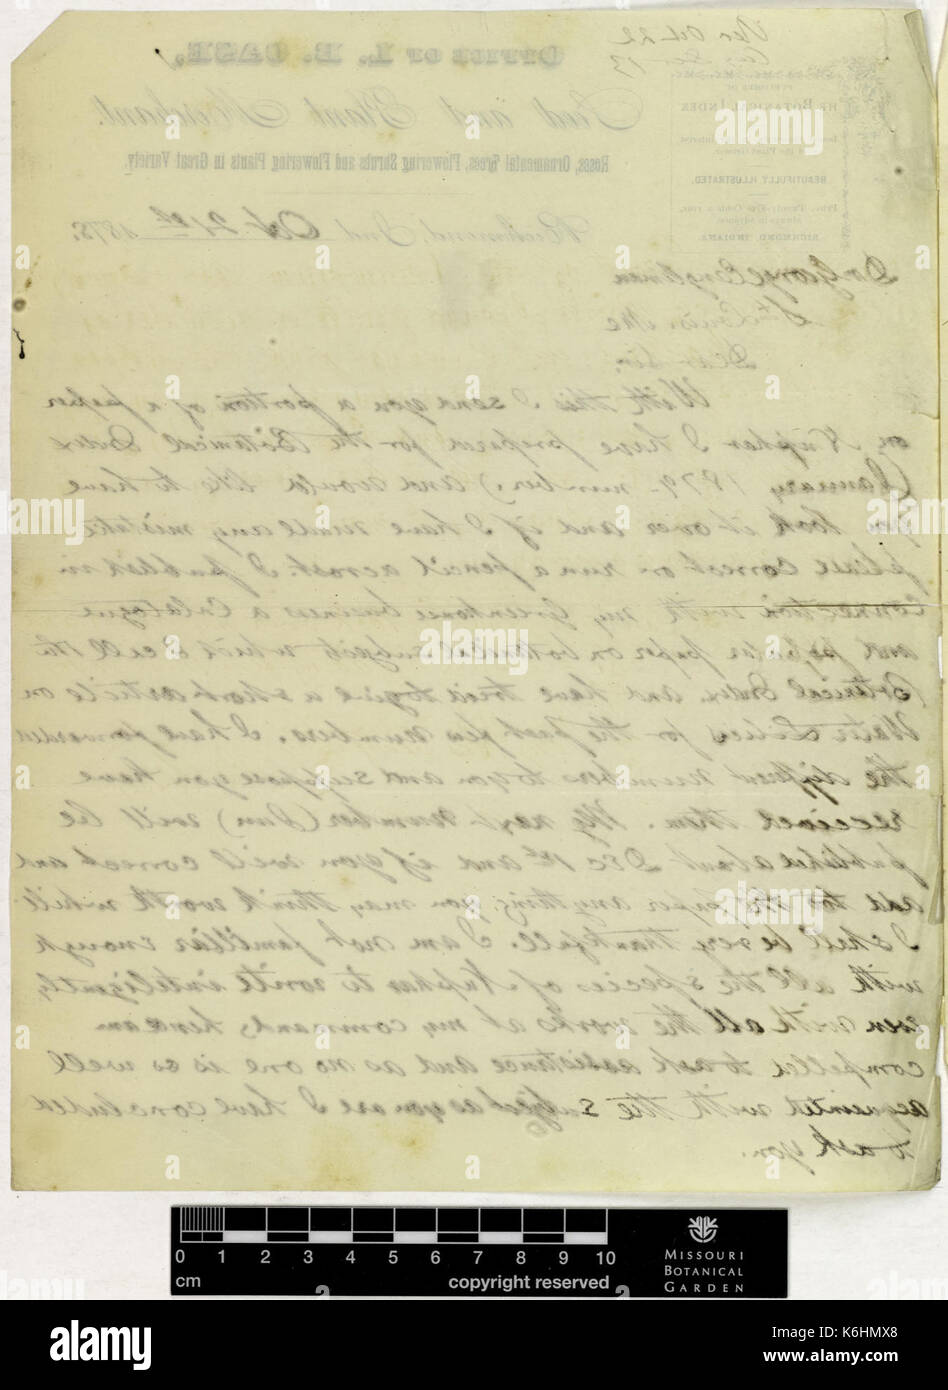 Rec Oct 22
Ans Dec 13
OFFICE OF L. B. CASE,
Seed and Plant Merchant.
Roses, Ornamental Trees, Flowering Shrubs and Flowering Plants in Great Variety.
THE BOTANICAL INDEX
BEAUTIFULLY ILLUSTRATED.
RICHMOND, INDIANA.
Richmond, Ind Oct 21st 1878.
Dr George Engelman
St Louis Mo
Dear Sir,
With this I send you a portion of a paper
on Nuphar I have prepared for the Botanical Index
(January 1879 - number.) and would like to have
you look it over and if I have made any mistake
please correct or run a pencil acrost. I publish in
connection with my Greenhouse business a Catalogue
and popular paper on botanical subjects which I call the
Botanical Index, and have tried to give a short article on
Water Lilies for the past few numbers. I have forwarded
the different numbers to you and suppose you have
received them. My next number (Jan) will be
published about Dec 1st and if you will correct and
add to the paper anything you may think worth while
I shall be very thankfull. I am not familliar enough
with all the species of Nuphar to write inteligently
even with all the works at my command, hence am
compelled to ask assistance and as no one is so well
acquainted with the subject as you are I have concluded
to ask you.
0 1 2 3 4 5 6 7 8 9 10
cm
copyright reserved
MISSOURI
BOTANICAL
GARDEN
alamy
a
alamy
Image ID: K6HMX8
www.alamy.com